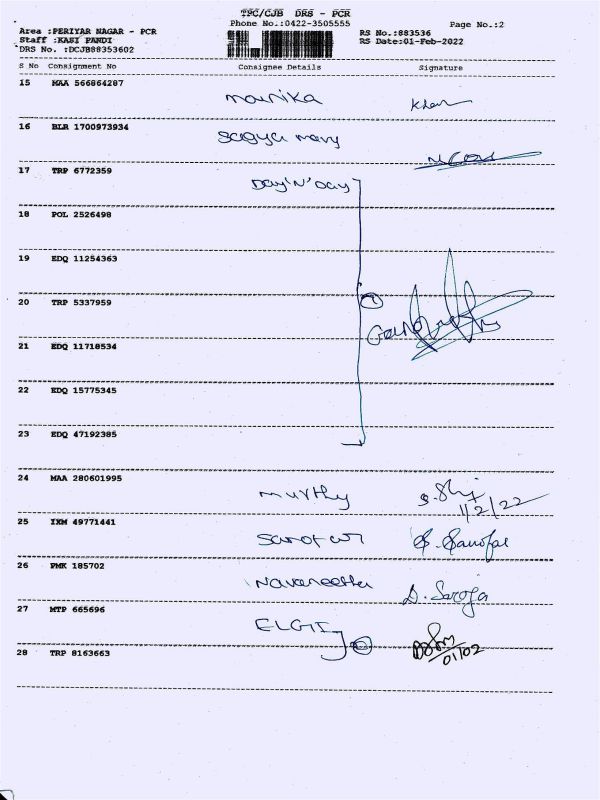 TPC/CJB DRS - PCR
Phone No.:0422-3505555
Page No.:2
Area :PERIYAR NAGAR - PCR
Staff :KASI PANDI
DRS No. :DCJB88353602
RS No.:883536
RS Date:01-Feb-2022
S No Consignment No Consignee Details Signature
15 MAA 566864287 mounika Khan
16 BLR 1700973934 Sagya mary
17 TRP 6772359 Day'N'Day
18 POL 2526498
19 EDQ 11254363
20 TRP 5337959
21 EDQ 11718534
22 EDQ 15775345
23 EDQ 47192385
24 MAA 280601995 murthy
1/2/22
25 IXM 49771441
26 PMK 185702 Navaneetha D. Saroja
27 MTP 665696 ELGI
28 TRP 8163663 01/02